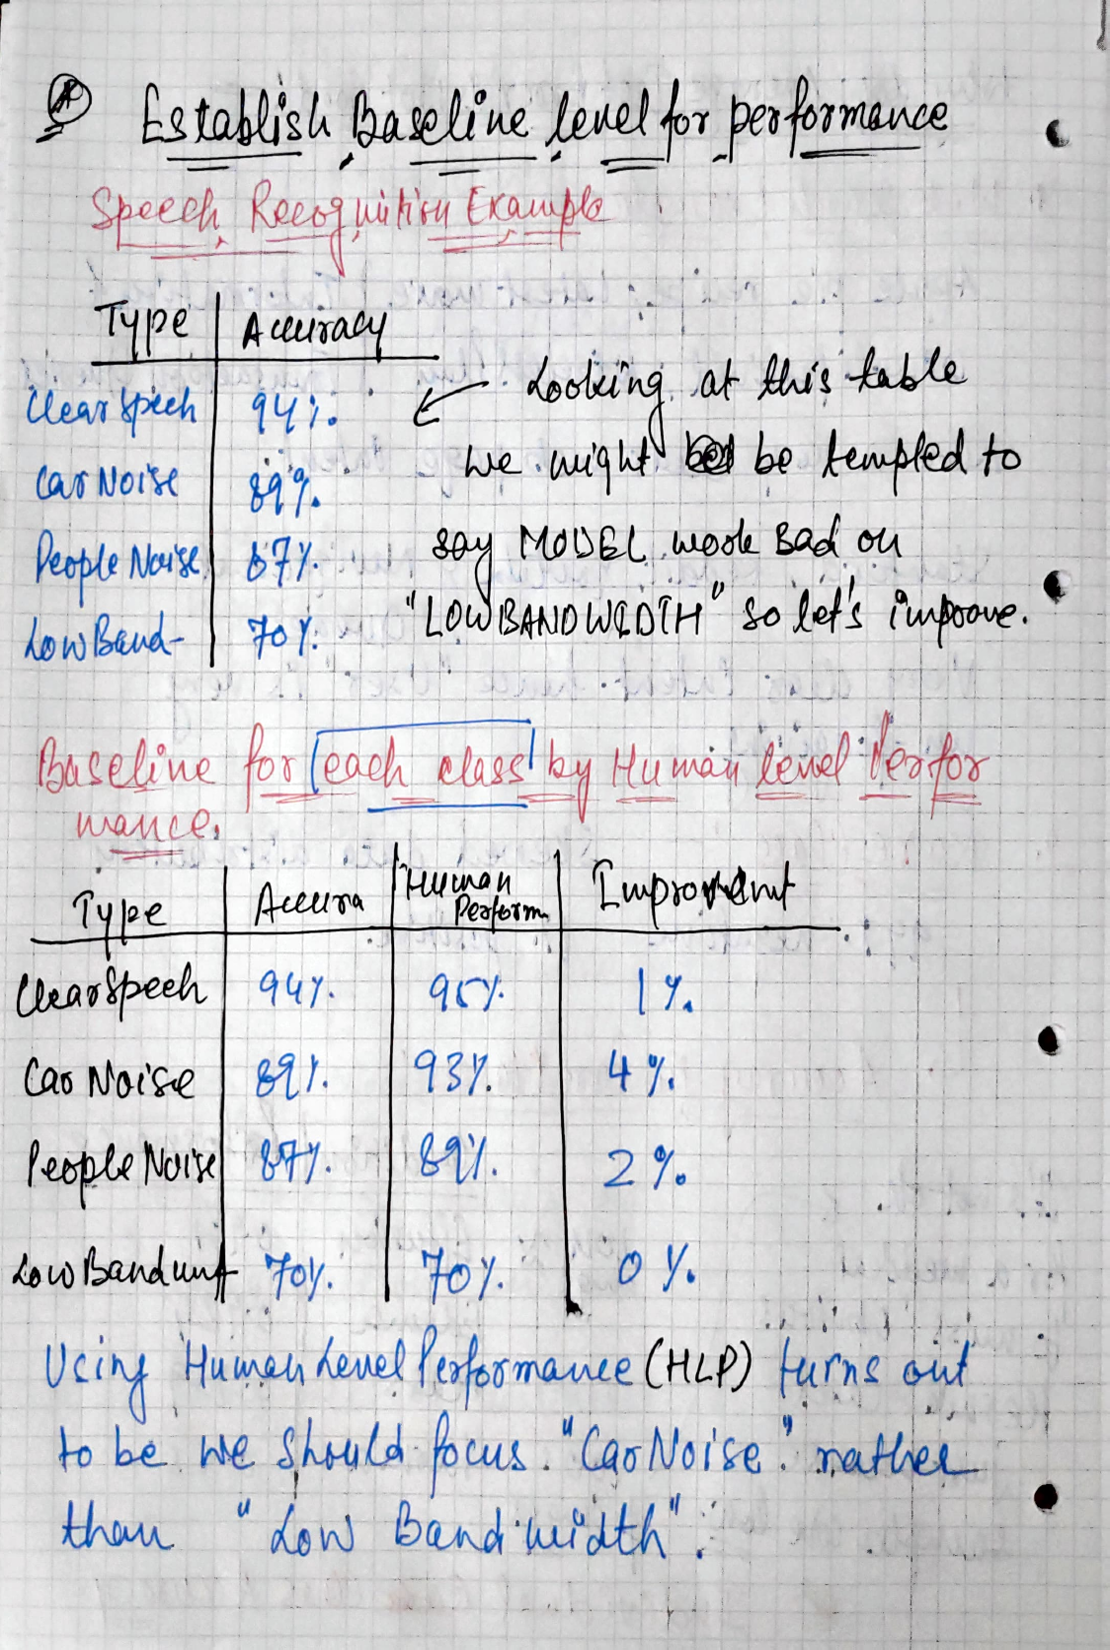 Establish Baseline level for performance
Speech Recognition Example
Type Accuracy
Clear Spech 94%.
Car Noise 89%.
People Noise 87%.
Low Band- 70%.
Looking at this table
we might be tempted to
say MODEL work Bad on
"LOWBANDWIDTH" so let's improve.
Baseline for each class by Human level Perfor
mance.
Type Accura Human Perform Improvemt
Clear Spech 94%. 95%. 1%.
Car Noise 89%. 93%. 4%.
People Noise 87%. 89%. 2%.
Low Band 70%. 70%. 0%.
Using Human Level Performance (HLP) turns out
to be we should focus "Car Noise" rather
than "Low Bandwidth".